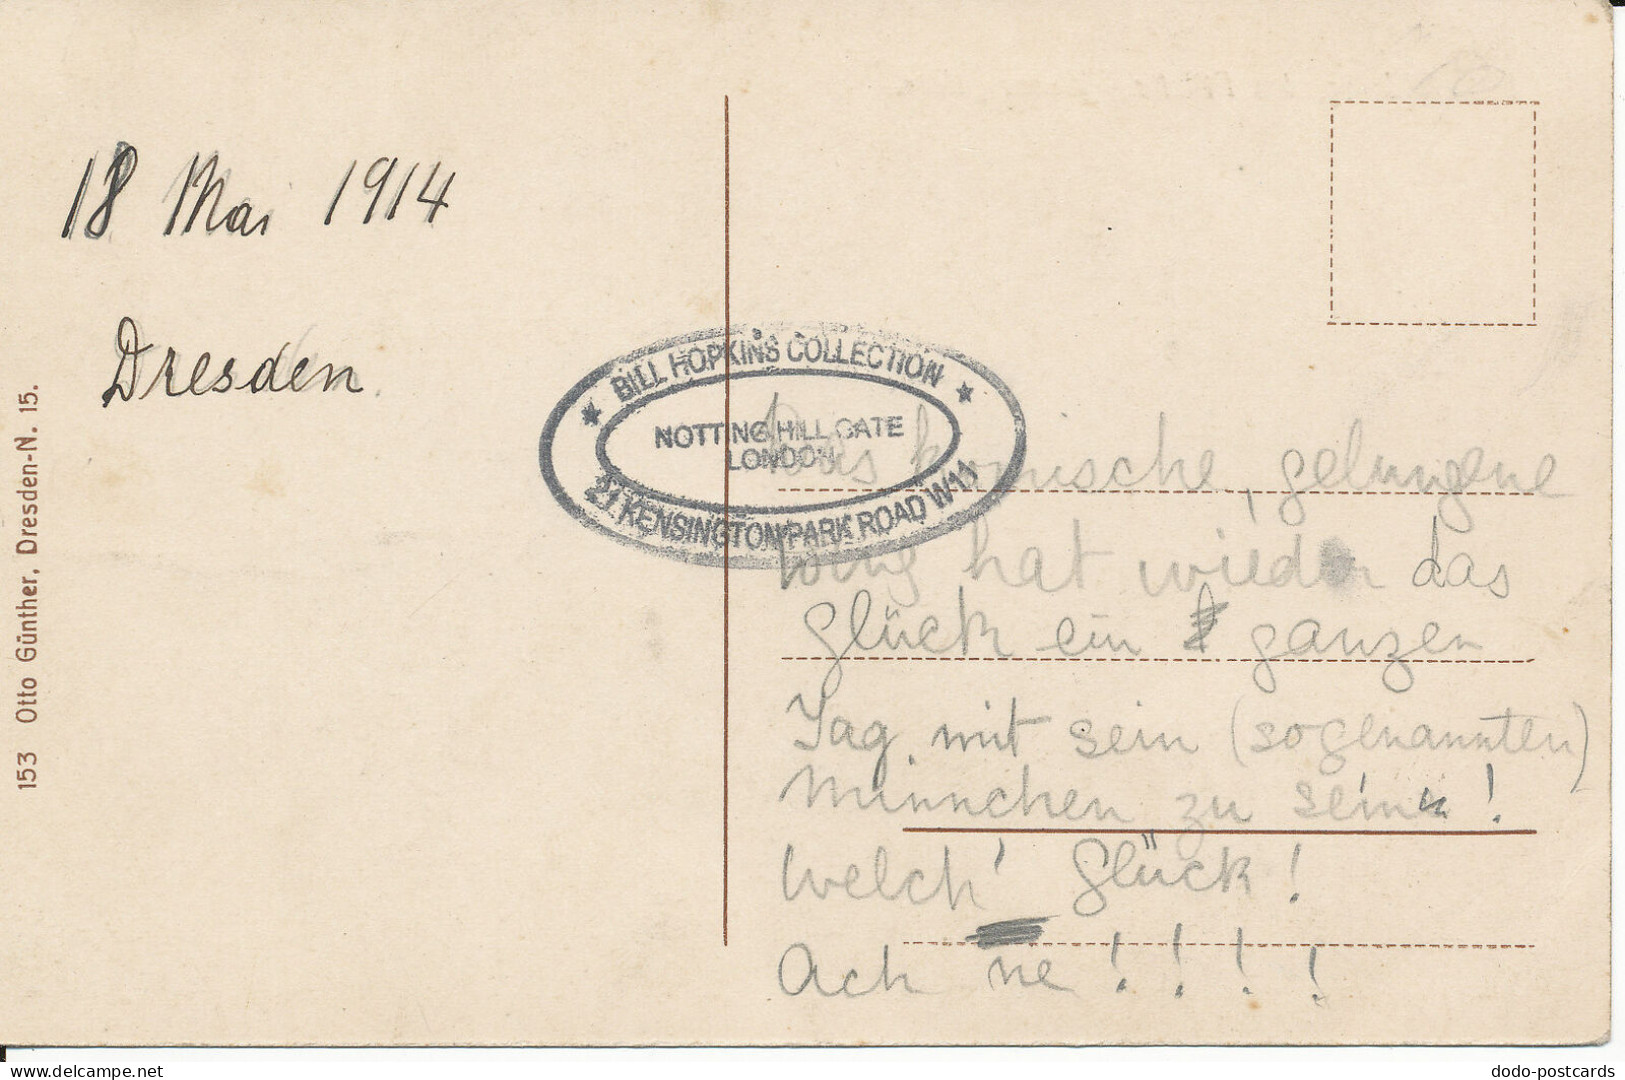 18 Mai 1914
Dresden
153 Otto Günther, Dresden-N. 15.
★ BILL HOPKINS COLLECTION ★
NOTTING HILL GATE
LONDON
21 KENSINGTON PARK ROAD W11
Das komische, gelungene
hat wieder das
Glück ein ganzen
Tag mit sein (sogenannten)
Männchen zu sein!
Welch' Glück!
Ach ne!!!!
delcampe.net
dodo-postcards